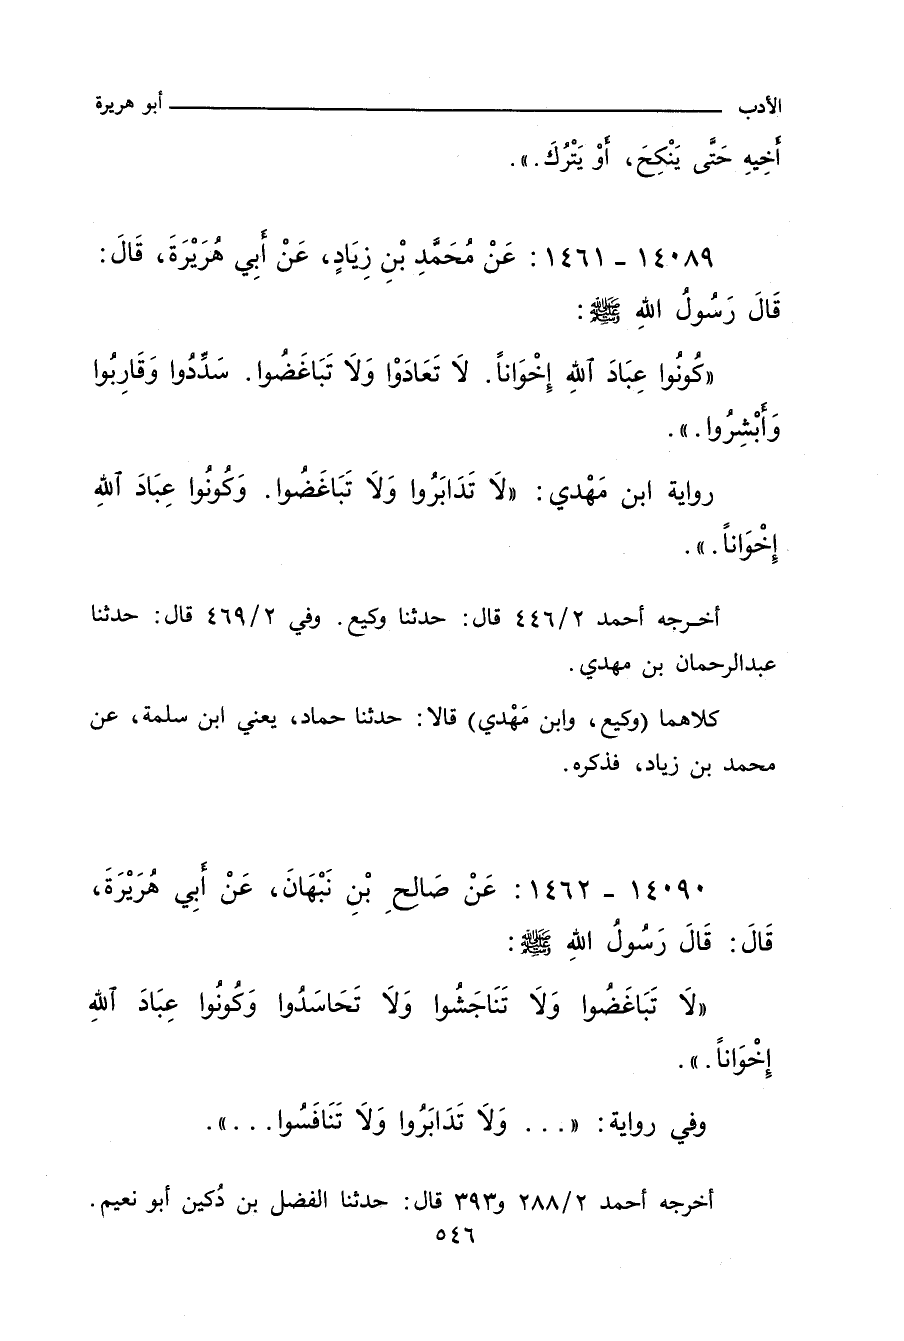 الأدب ـــــــ أبو هريرة
أَخِيهِ حَتَّى يَنْكِحَ، أَوْ يَتْرُكَ.».
١٤٠٨٩ - ١٤٦١ : عَنْ مُحَمَّدِ بْنِ زِيَادٍ، عَنْ أَبِي هُرَيْرَةَ، قَالَ:
قَالَ رَسُولُ اللهِ ﷺ:
«كُونُوا عِبَادَ اللهِ إِخْوَاناً. لَا تَعَادَوْا وَلَا تَبَاغَضُوا. سَدِّدُوا وَقَارِبُوا
وَأَبْشِرُوا.».
رواية ابن مَهْدي: «لَا تَدَابَرُوا وَلَا تَبَاغَضُوا. وَكُونُوا عِبَادَ اللهِ
إِخْوَاناً.».
أخرجه أحمد ٤٤٦/٢ قال: حدثنا وكيع. وفي ٤٦٩/٢ قال: حدثنا
عبدالرحمان بن مهدي.
كلاهما (وكيع، وابن مَهْدي) قالا: حدثنا حماد، يعني ابن سلمة، عن
محمد بن زياد، فذكره.
١٤٠٩٠ - ١٤٦٢ : عَنْ صَالِحِ بْنِ نَبْهَانَ، عَنْ أَبِي هُرَيْرَةَ،
قَالَ: قَالَ رَسُولُ اللهِ ﷺ:
«لَا تَبَاغَضُوا وَلَا تَنَاجَشُوا وَلَا تَحَاسَدُوا وَكُونُوا عِبَادَ اللهِ
إِخْوَاناً.».
وفي رواية: «... وَلَا تَدَابَرُوا وَلَا تَنَافَسُوا...».
أخرجه أحمد ٢٨٨/٢ و٣٩٣ قال: حدثنا الفضل بن دُكين أبو نعيم.
٥٤٦